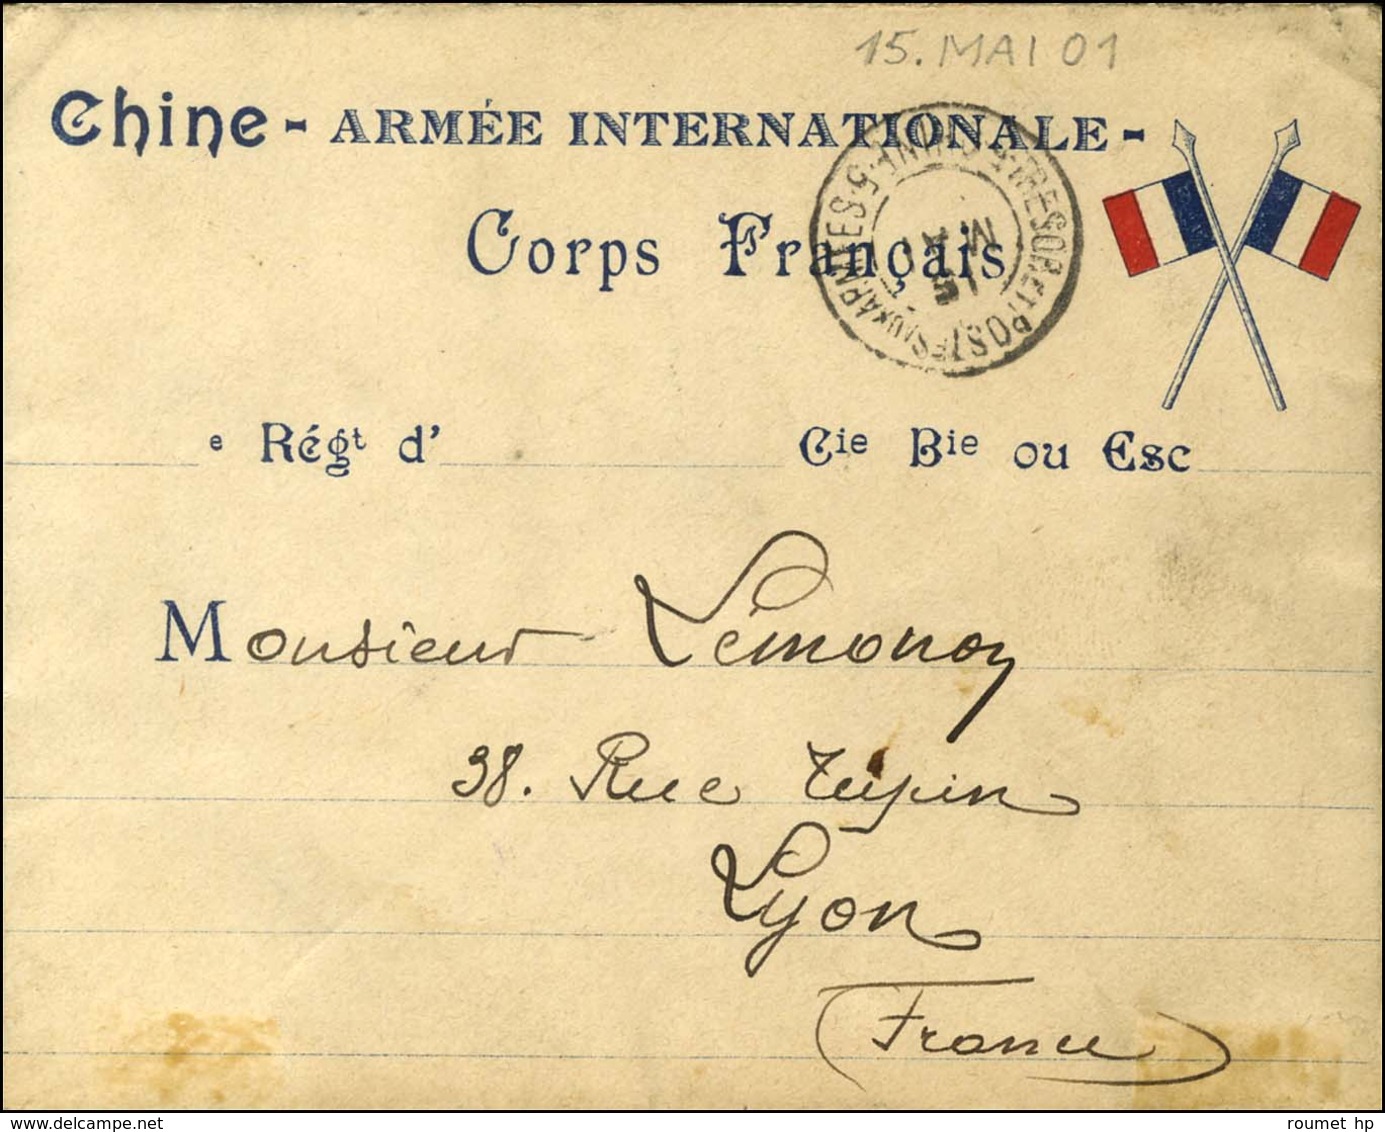 15. MAI 01
Chine - ARMÉE INTERNATIONALE -
Corps Français
TRESOR ET POSTES AUX ARMEES · 5 · CHINE
15
MAI
01
e Régt d' Cie Bie ou Esc
Monsieur Lémonon
38. Rue Tupin
Lyon
(France)
roumet hp